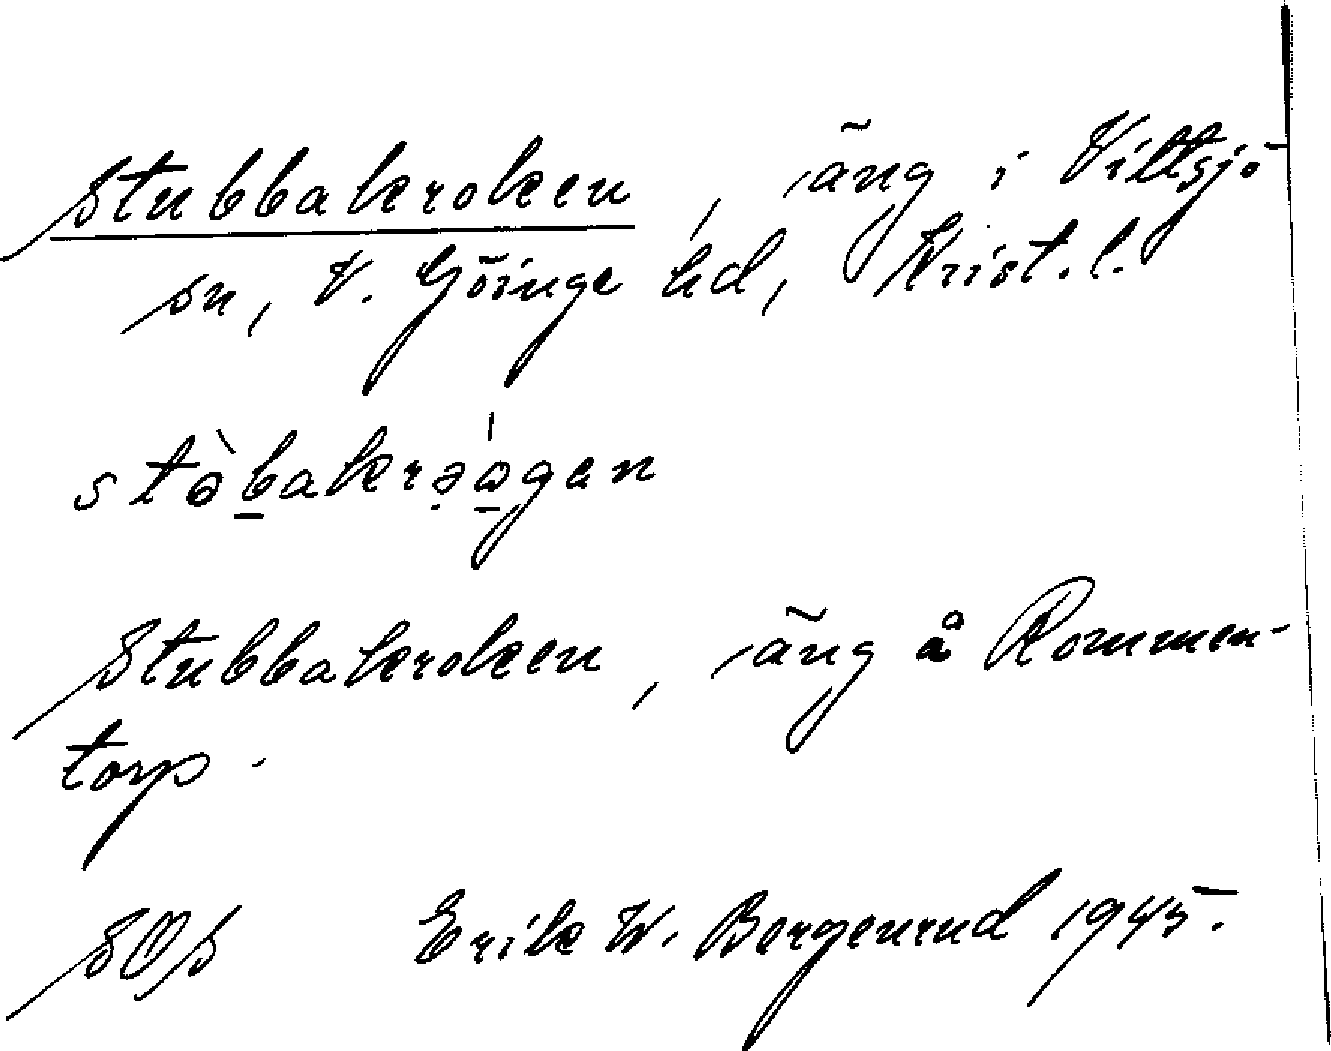 Stubbakroken, äng i Vittsjö
sn, V. Göinge hd, Krist. l.
stə̀b̲akrə̣ó̲gen
Stubbakroken, äng å Rommen-
torp.
SOS Erik W. Bergenrud 1945.